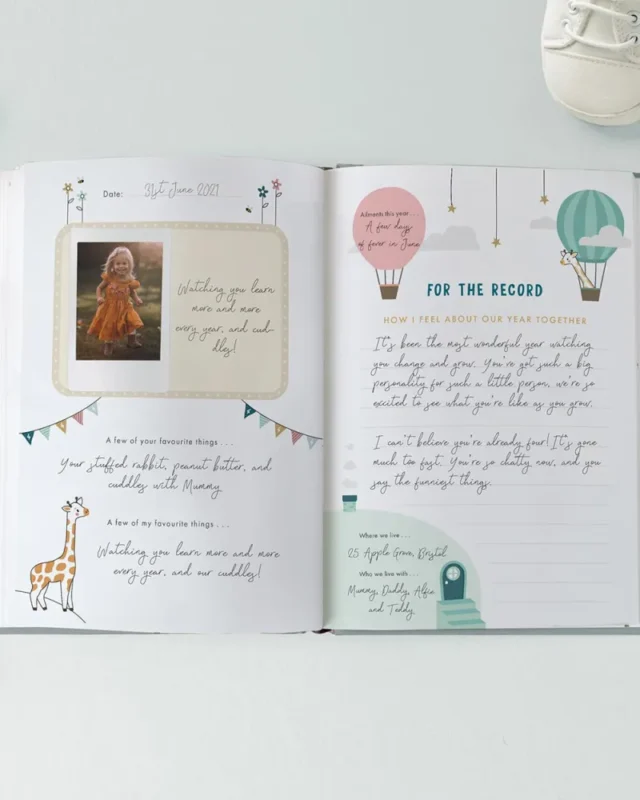 Date: 31st June 2021
Watching you learn
more and more
every year, and cud-
dles!
A few of your favourite things . . .
Your stuffed rabbit, peanut butter, and
cuddles with Mummy.
A few of my favourite things . . .
Watching you learn more and more
every year, and our cuddles!
Ailments this year . . .
A few days
of fever in June
FOR THE RECORD
HOW I FEEL ABOUT OUR YEAR TOGETHER
It's been the most wonderful year watching
you change and grow. You've got such a big
personality for such a little person, we're so
excited to see what you're like as you grow.
I can't believe you're already four! It's gone
much too fast. You're so chatty now, and you
say the funniest things.
Where we live . . .
25 Apple Grove, Bristol
Who we live with . . .
Mummy, Daddy, Alfie
and Teddy.